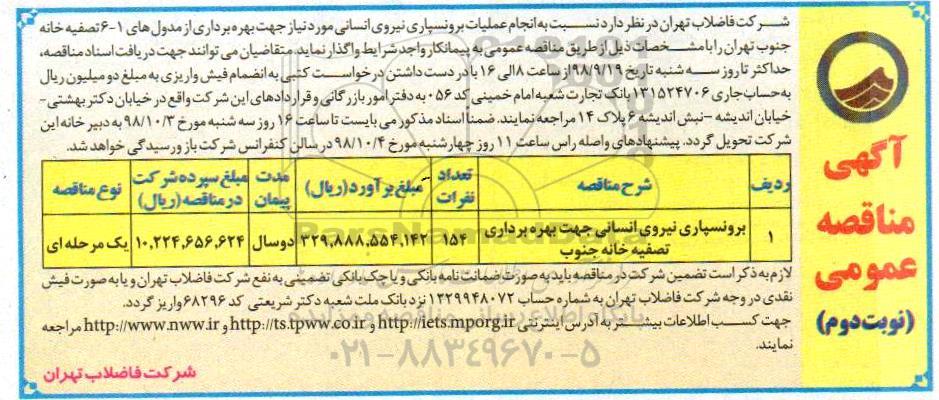 آگهی
مناقصه
عمومی
(نوبت دوم)
شرکت فاضلاب تهران در نظر دارد نسبت به انجام عملیات برونسپاری نیروی انسانی مورد نیاز جهت بهره برداری از مدول های ۱-۶ تصفیه خانه
جنوب تهران را با مشخصات ذیل از طریق مناقصه عمومی به پیمانکار واجد شرایط واگذار نماید. متقاضیان می توانند جهت دریافت اسناد مناقصه،
حداکثر تا روز سه شنبه تاریخ ۹۸/۹/۱۹ از ساعت ۸ الی ۱۶ با در دست داشتن درخواست کتبی به انضمام فیش واریزی به مبلغ دو میلیون ریال
به حساب جاری ۱۳۱۵۲۴۷۰۶ بانک تجارت شعبه امام خمینی کد ۰۵۶ به دفتر امور بازرگانی و قراردادهای این شرکت واقع در خیابان دکتر بهشتی-
خیابان اندیشه -نبش اندیشه ۶ پلاک ۱۴ مراجعه نمایند. ضمناً اسناد مذکور می بایست تا ساعت ۱۶ روز سه شنبه مورخ ۹۸/۱۰/۳ به دبیرخانه این
شرکت تحویل گردد. پیشنهادهای واصله راس ساعت ۱۱ روز چهارشنبه مورخ ۹۸/۱۰/۴ در سالن کنفرانس شرکت باز و رسیدگی خواهد شد.
ردیف شرح مناقصه تعداد نفرات مبلغ برآورد (ریال) مدت پیمان مبلغ سپرده شرکت در مناقصه (ریال) نوع مناقصه
۱ برونسپاری نیروی انسانی جهت بهره برداری تصفیه خانه جنوب ۱۵۴ ۳۲۹,۸۸۸,۵۵۴,۱۴۲ دو سال ۱۰,۲۲۴,۶۵۶,۶۲۴ یک مرحله ای
لازم به ذکر است تضمین شرکت در مناقصه باید به صورت ضمانت نامه بانکی و یا چک بانکی تضمینی به نفع شرکت فاضلاب تهران و یا به صورت فیش
نقدی در وجه شرکت فاضلاب تهران به شماره حساب ۱۲۲۹۹۴۸۰۷۲ نزد بانک ملت شعبه دکتر شریعتی کد ۶۸۲۹۶ واریز گردد.
جهت کسب اطلاعات بیشتر به آدرس اینترنتی http://iets.mporg.ir و http://ts.tpww.co.ir و http://www.nww.ir مراجعه
نمایند.
شرکت فاضلاب تهران
ParsNamadData
پایگاه اطلاع رسانی مناقصه و مزایده
۰۲۱-۸۸۳۴۹۶۷۰-۵